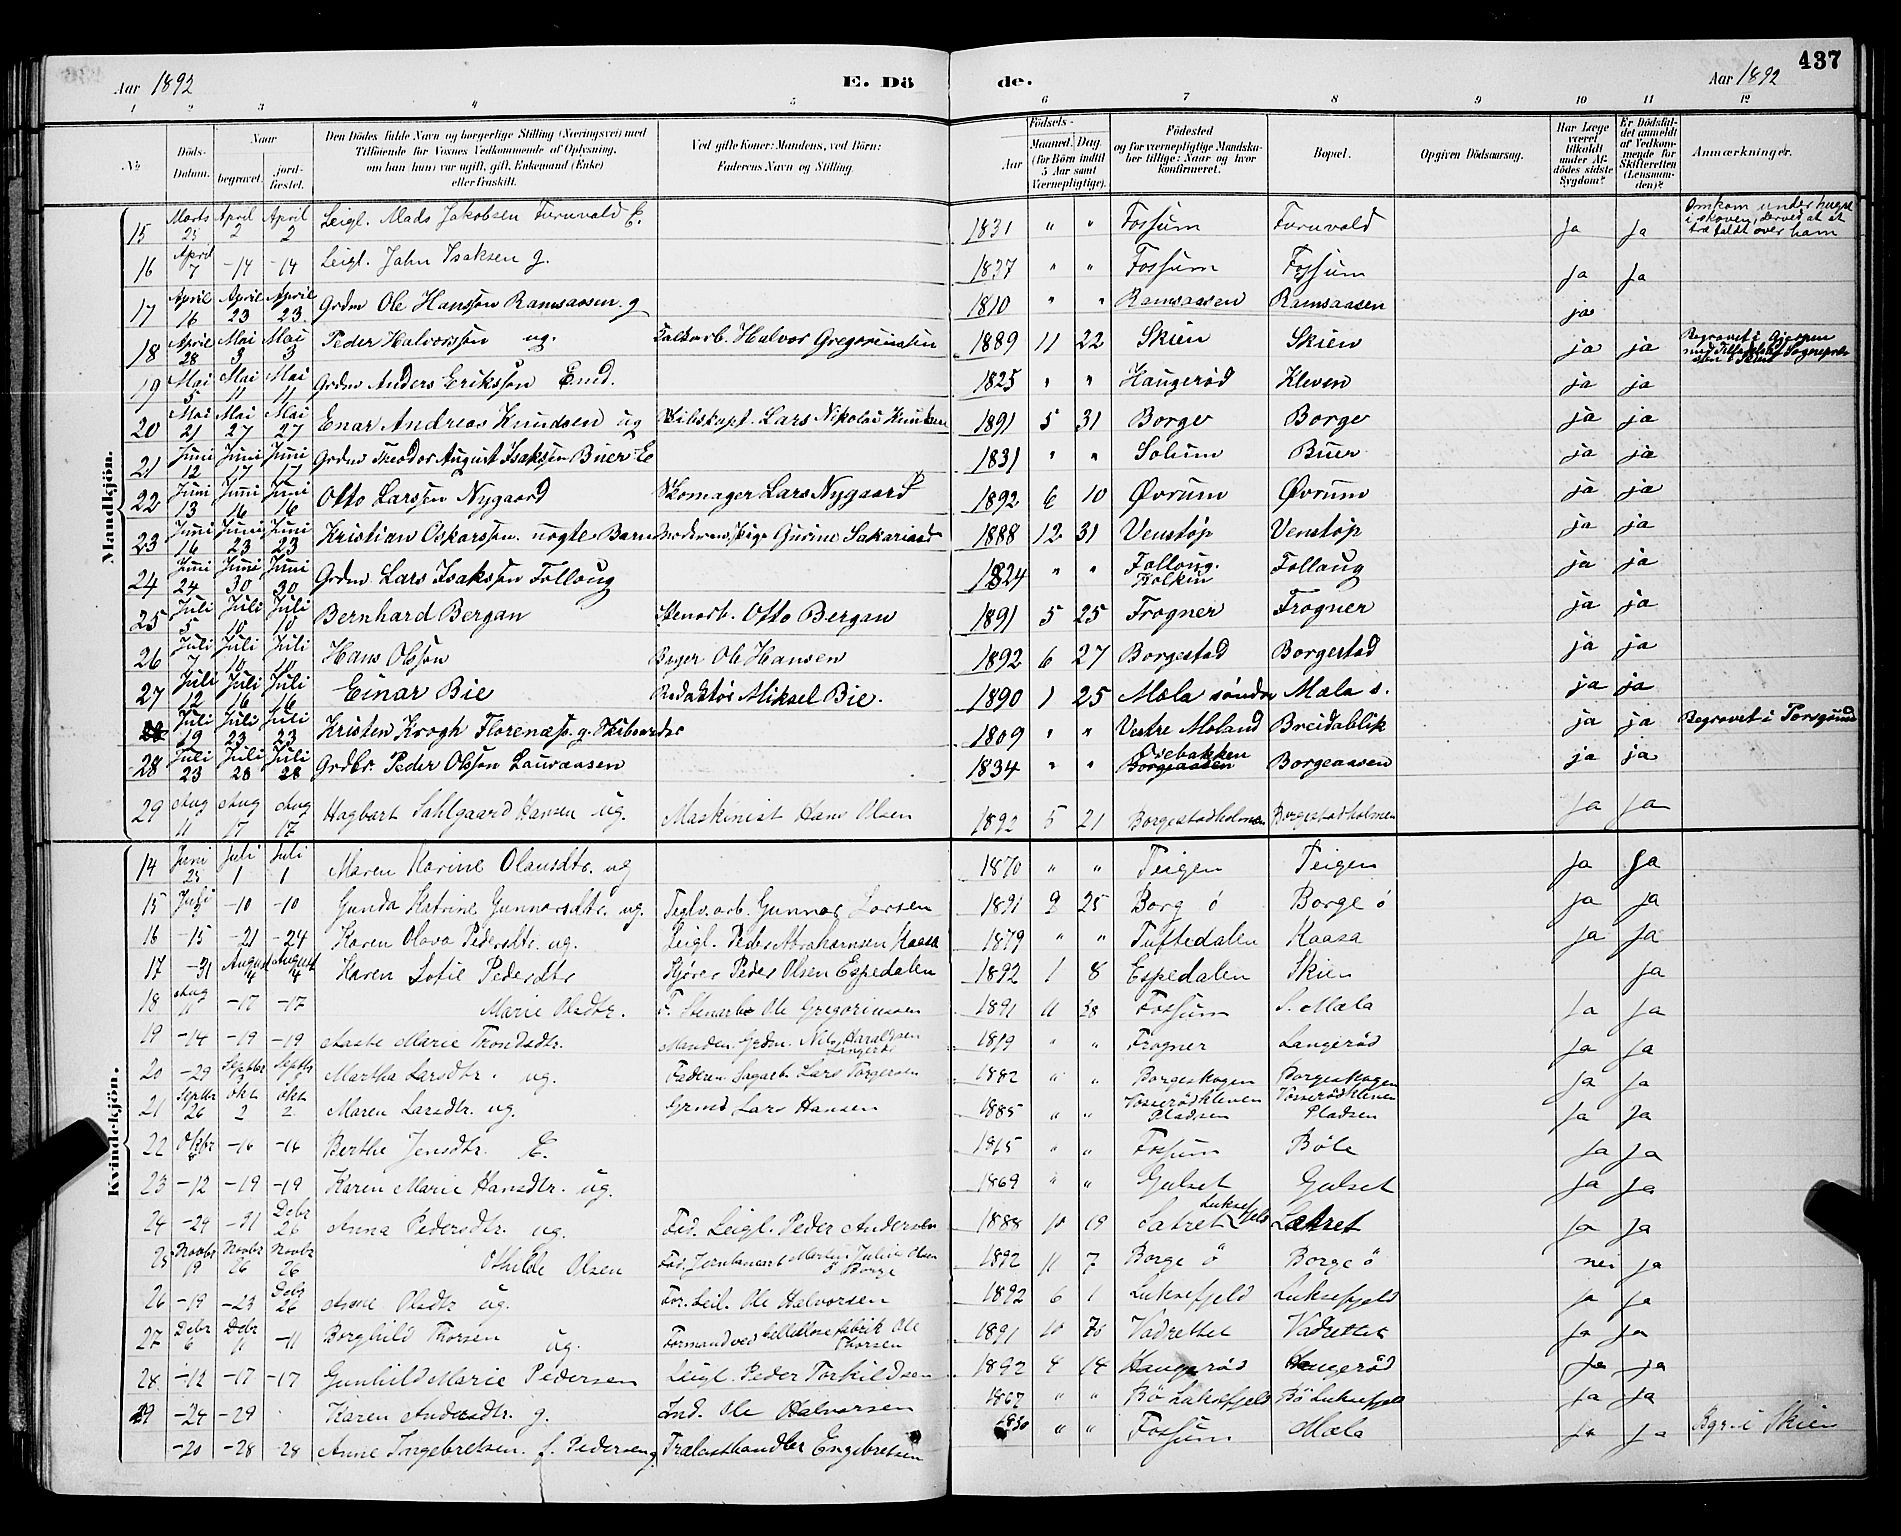 437
Aar 1892 E. Dö de. Aar 1892
1 2 3 4 5 6 7 8 9 10 11 12
No. Döds-Datum. Naar begravet. jordfæstet. Den Dödes fulde Navn og borgerlige Stilling (Næringsvei) med Tilföiende for Voxnes Vedkommende af Oplysning, om han (hun) var ugift, gift, Enkemand (Enke) eller fraskilt. Ved gifte Koner: Mandens, ved Börn: Faderens Navn og Stilling. Födsels- Aar Maaned. Dag. (for Börn indtil 5 Aar samt Værnepligtige). Födested og for værnepligtige Mandskaber tillige: Naar og hvor konfirmeret. Bopæl. Opgiven Dödsaarsag. Har Læge været tilkaldt under Afdödes sidste Sygdom? Er Dödsfaldet anmeldt af Vedkommende for Skifteretten (Lensmanden)? Anmærkninger.
Mandkjön.
15 Marts 25 April 2 April 2 Leigl. Mads Jakobsen Furuvald E. 1831 " " Fossum Furuvald ja ja Omkom under hugst i skoven, derved at et træ faldt over ham
16 April 7 -14 -14 Leigl. John Isaksen g. 1837 " " Fossum Fossum ja ja
17 April 16 April 23 April 23 Grdm Ole Hansson Ramsaasen g 1810 " " Ramsaasen Ramsaasen ja
18 April 28 Mai 3 Mai 3 Peder Halvorsson ug. Halvor Gregoriussen 1889 11 22 Skien Skien ja ja Begravet i Gjerpen med Tilladelse af Sognepresten i Skien
19 Mai 5 Mai 11 Mai 11 Grdm Anders Eriksson Emd. 1825 " " Haugerød Kleven ja ja
20 Mai 21 Mai 27 Mai 27 Enar Andreas Knudsen ug Skibskapt. Lars Nikolai Knudsen 1891 5 31 Borge Borge ja ja
21 Juni 12 Juni 17 Juni 17 Grdm Theodor August Isaksen Buer E 1831 " " Solum Buer ja ja
22 Juni 13 Juni 16 Juni 16 Otto Larssen Nygaard Skomager Lars Nygaard 1892 6 10 Øvrum Øvrum ja ja
23 Juni 16 Juni 23 Juni 23 Kristian Oskarssen uægte Barn Moderen: Pige Gurine Sakariasd 1888 12 31 Venstøp Venstøp ja ja
24 Juni 24 Juni 30 Juni 30 Grdm Lars Isaksøn Follaug 1824 " " Follaug. Follaug ja ja
25 Juli 5 Juli 10 Juli 10 Bernhard Bergan Stenarb. Otto Bergan 1891 5 25 Frogner Frogner ja ja
26 Juli 7 Juli 10 Juli 10 Hans Olsson Bager Ole Hansen 1892 6 27 Borgestad Borgestad ja ja
27 Juli 12 Juli 16 Juli 16 Einar Bie Redaktör Mikael Bie. 1890 1 25 Mæla søndre Mæla s. ja ja
Juli 19 Juli 23 Juli 23 Kristen Krogh Florenæs g. Skibsreder 1809 " " Vestre Moland Breidablik ja ja Begravet i Porsgrund
28 Juli 23 Juli 28 Juli 28 Grdbr. Peder Olsson Lauraasen 1834 " " Borgeaasen ja ja
29 Aug 11 Aug 17 Aug 17 Hagbart Dahlgaard Hansen ug. Maskinist Hans Olsen 1892 5 21 Borgestadholmen Borgestadholmen ja ja
Kvindekjön.
14 Juni 25 Juli 1 Juli 1 Maren Karine Olausdtr. ug 1870 " " Teigen Teigen ja ja
15 Juli -10 -10 Gunda Katrine Gunnarsdtr. ug. Teglv.arb. Gunnar Larsen 1891 9 25 Borg ö Borge ö ja ja
16 -15 -21 -24 Karen Olava Pedersdtr. ug. Leigl. Peder Abrahamsen Kaasa 1879 " " Tuftedalen Kaasa ja ja
17 -31 August 4 August 4 Karen Sofie Pedersdtr Kjörer Peder Olsen Espedalen 1892 1 8 Espedalen Skien ja
18 Aug 11 -17 -17 Marie Olsdtr. F. Stenarb Ole Gregoriussen 1891 11 28 Fossum S. Mæla ja ja
19 -14 -19 -19 Aaste Marie Trondsdtr. Manden Grdm. Nils Haraldsen Langeröd 1819 " " Frogner Langeröd ja ja
20 -29 Septbr 3 Septbr 3 Martha Larsdtr. ug. Faderen Sagarb. Lars Torgersen 1882 " " Borgeskogen Borgeskogen ja ja
21 Septbr 26 Okt 2 Okt 2 Maren Larsdtr. ug. Grmd Lars Hansen 1885 " " Vosserødkleven Pladsen Vosserødkleven Pladsen ja ja
22 Oktbr 8 -16 -16 Berthe Jensdtr. E. " " Fossum Böle ja ja
23 -12 -19 -19 Karen Marie Hansdtr. ug. 1869 " " Gulset Gulset ja ja
24 -24 -31 Debr 26 Anna Pedersdtr. ug. Fad. Leigl. Peder Andersen 1888 10 19 Sætret Luksefjeld Sætret ja ja
25 Novbr 19 Novbr 26 Novbr 26 Othilde Olsen Fad. Jernbanearb Martin Julius Olsen ö Borge 1892 11 7 Borge ö Borge ö nei ja
26 -19 -23 Debr 26 Anne Olsdtr ug. Far. Leil. Ole Halvorsen 1892 6 1 Luksefjeld Luksefjeld ja ja
27 Debr 6 Debr 11 -11 Borghild Thorsen ug. Formand ved Cellulosefabrik Ole Thorsen 1891 10 Vadrettet Vadrettet ja ja
28 -12 -17 -17 Gunhild Marie Pedersen Leigl. Peder Torkildsen 1892 4 14 Haugeröd Haugeröd ja ja
29 -24 -29 Karen Andersdtr. g. Ind. Ole Halvorsen 1867 " " Bö Luksefjeld Bö Luksefjeld ja ja
-20 -28 -28 Anne Ingebretsen f. Pedersen g. Trælasthandler Engebretsen 1830 " " Fossum Mæla ja ja Bgr. i Skien